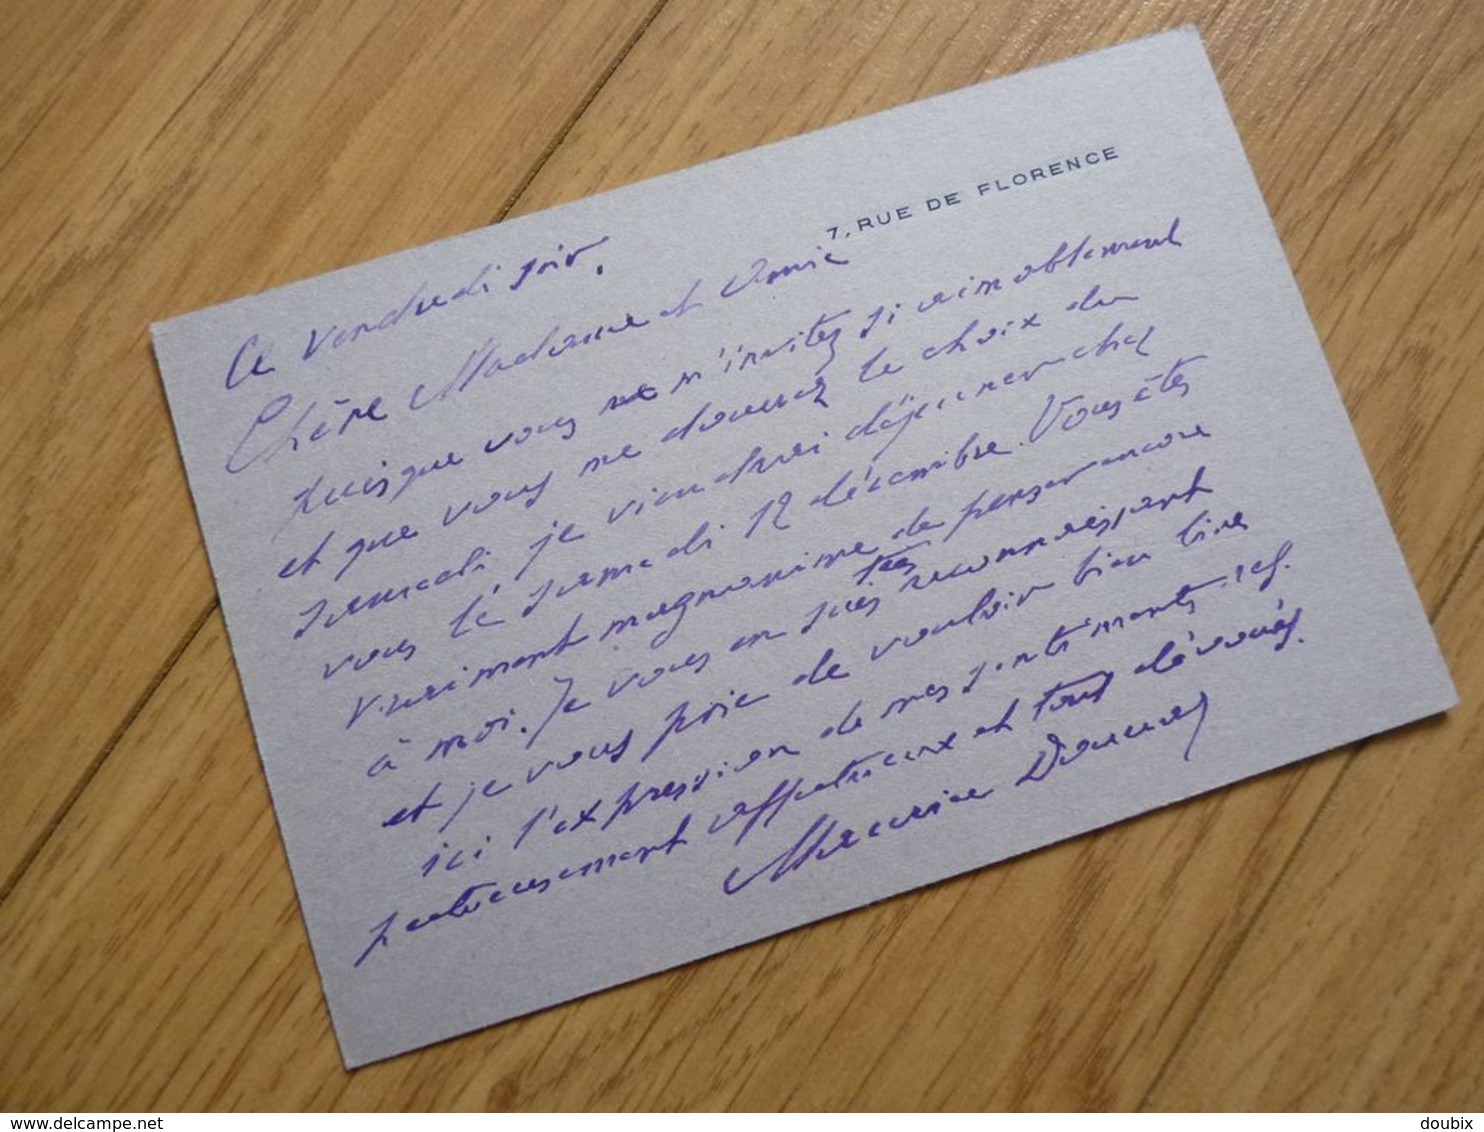 7, RUE DE FLORENCE
Ce vendredi soir.
Chère Madame et Amie
puisque vous m'invitez si aimablement
et que vous me donnez le choix du
samedi, je viendrai déjeuner chez
vous le samedi 12 décembre. Vous êtes
vraiment magnanime de penser encore
à moi. Je vous en suis très reconnaissant
et je vous prie de vouloir bien lire
ici l'expression de mes sentiments res-
pectueusement affectueux et tout dévoués.
Maurice Donnay
www.delcampe.net
doubix